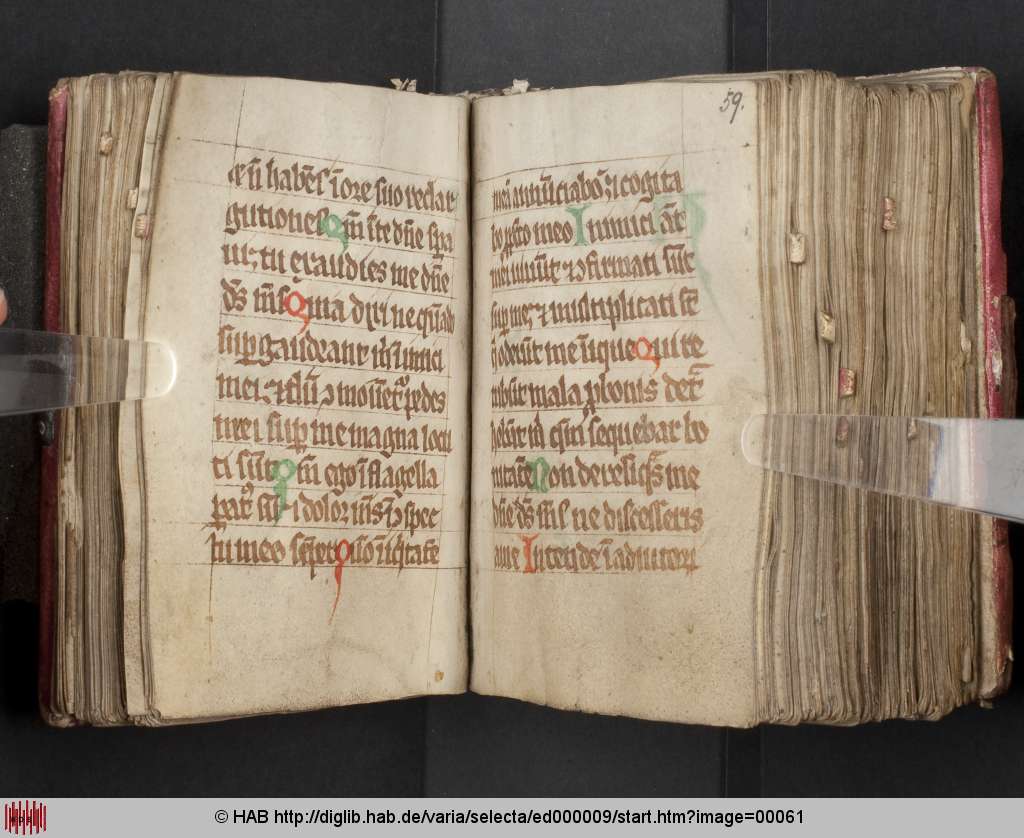 & nō habēs ī ore suo redar
gutiones Qm̄ ī te dn̄e spa
ui; tu exaudies me dn̄e
ds̄ m̄s Quia dixi ne qn̄do
suꝑgaudeant m̄ inimici
mei; & dū ↄmouent᷑ pedes
mei suꝑ me magna locu
ti sūt Qm̄ ego ī flagella
parat᷑ sū & dolor m̄s ī ↄspec
tu meo semꝑ Qm̄ īiq̇tatē
meā annūciabo & cogita
bo ꝓ pctō meo Inimici aūt
mei uiuūt & ↄfirmati sūt
suꝑ me; & multiplicati sūt
q̇ oderūt me īique Qui re
tribuūt mala ꝓ bonis det᷑
hebāt m̄ qm̄ sequebar bo
nitatē Non derelīqͣs me
dn̄e ds̄ m̄s ne discesseris
a me Intende ī adiutoriū
59.
© HAB http://diglib.hab.de/varia/selecta/ed000009/start.htm?image=00061